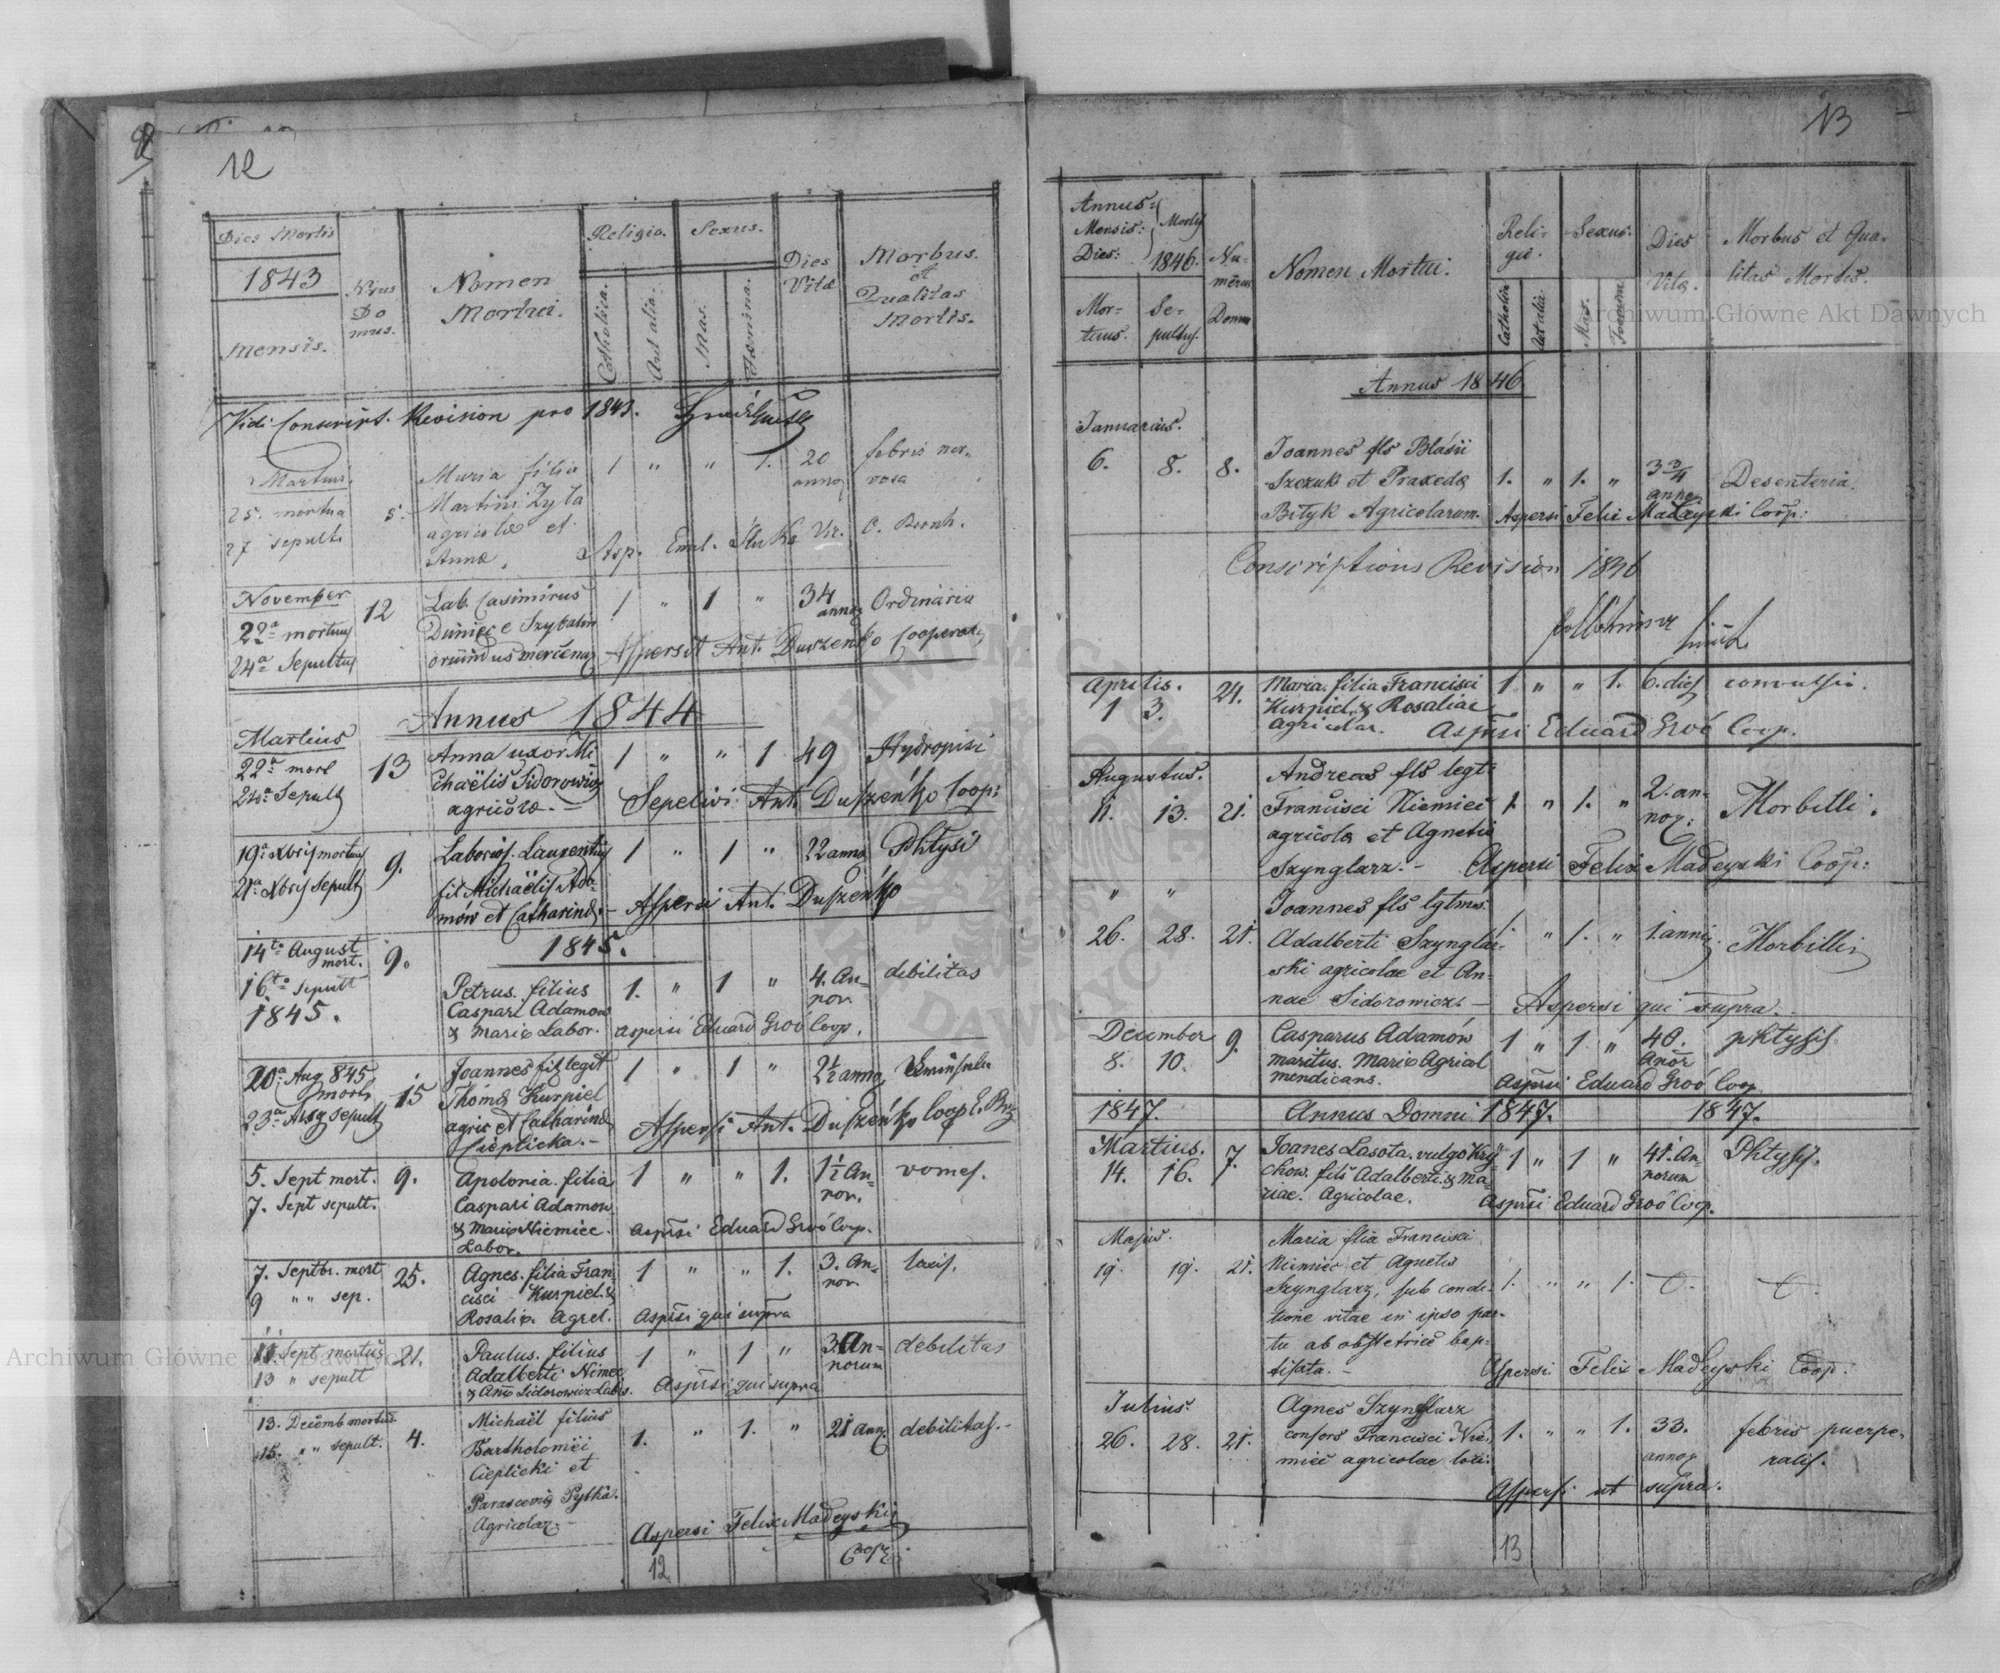 12
Dies Mortis
1843
Mensis.
Nrus
Do
mus.
Nomen
Mortui.
Religio.
Catholica.
Aut alia.
Sexus.
Mas.
Foemina.
Dies
Vitæ
Morbus.
et
Qualitas
Mortis.
Vidi Conscript. Revision pro 1843.
Martius.
25. mortua
27 sepulta
5.
Maria filia
Martini Zyła
agricolæ et
Annæ.
1 " " 1.
20
annor
febris ner-
vosa
Asp. Eml. Stuka Vic. O. Bernh.
November
22a mortuus
24a Sepultus
12
Lab. Casimirus
Duniec e Szybalin
oriundus mercenar
1 " 1 "
34
annor
Ordinaria
Aspersit Ant. Duszeńko Cooperator
Annus 1844
Martius
22a mort
24a Sepult
13
Anna uxor Mi
chaëlis Sidorowicz
agricolæ -
1 " " 1 49 Hydropisi
Sepelivi Ant. Duszeńko Coop:
19a Xbris mortuus
21a Xbris Sepult
9.
Laborios. Laurentius
fil Michaëlis Ada-
mów et Catharinæ. -
1 " 1 " 22 annor Phtysi
Aspersi Ant. Duszeńko
1845.
14ta August
mort.
16ta sepult
1845.
9.
Petrus. filius
Caspari Adamow
& Mariæ Labor.
1. " 1 "
4. An-
nor.
debilitas
aspersi Eduard Groó Coop.
20a Aug 845
mort
23a Aug sepult
15
Joannes fil legit
Thomæ Kurpiel
agric et Catharinæ
Cieplicka. -
1 " 1 " 2½ annor
Aspersi Ant. Duszeńko Coop
5. Sept mort.
7. Sept sepult.
9.
Apolonia. filia
Caspari Adamow
& Mariæ Niemiec.
Labor.
1 " " 1.
1½ An-
nor.
vomes.
Aspersi Eduard Groó Coop.
7. Septbr. mort
9 " " sep.
25.
Agnes. filia Fran-
cisci Kurpiel &
Rosaliæ. Agrel.
1 " " 1.
3. An-
nor.
Aspersi qui supra
11 Sept mortuus
13 " sepult
21.
Paulus. filius
Adalberti Nimec
& Annæ Sidorowicz Labs.
1 " 1 "
3. An-
norum
debilitas
Aspersi qui supra
13. Decemb mortuus
15. " " sepult.
4.
Michaël filius
Bartholomëi
Cieplicki et
Parascevia Pytka.
Agricolar. -
1. " 1. " 21 ann. debilitas. -
Aspersi Felix Madeyski
Coop:
12
13
Annus:
Mensis: Mortis
Dies: 1846.
Mor-
tuus.
Se-
pultus.
Nu-
merus
Domus
Nomen Mortui.
Reli-
gio.
Catholica
Aut alia.
Sexus.
Mas.
Foemina.
Dies
Vitæ.
Morbus et Qua-
litas Mortis.
Annus 1846
Januarius.
6. 8. 8.
Joannes fls Blasii
Szczuk et Praxeda
Bityk Agricolarum.
1. " 1. "
3¾
annor
Desenteria.
Aspersi Felix Madeyski Coop:
Conscriptions Revision 1846
Aprilis.
1 3. 24.
Maria. filia Francisci
Kurpiel. & Rosaliae
agricolar.
1 " " 1. 6. dies convulsio.
Aspersi Eduard Groó Coop.
Augustus.
11. 13. 21.
Andreas fls legt:
Francisci Niemiec
agricolæ et Agnetis
Szynglarz. -
1. " 1. "
2. an-
nor.
Morbilli.
Aspersi Felix Madeyski Coop:
" "
26. 28. 21.
Joannes fls lgtmus
Adalberti Szynglar-
ski agricolae et An-
nae Sidorowicz. -
1. " 1. " 1. anni Morbilli
Aspersi qui supra.
December
8. 10. 9.
Casparus Adamów
maritus. Mariæ Agricol
mendicans.
1 " 1 "
40.
Anor
phtysis
Aspersi Eduard Groó Coop.
1847. Annus Domni 1847. 1847.
Martius.
14. 16. 7.
Joanes Lasota. vulgo Kry
chow. filis Adalberti. & Ma-
riae. Agricolae.
1 " 1 "
41. An-
norum
Phtysis.
Aspersi Eduard Groó Coop.
Majus.
19. 19. 21.
Maria flia Francisci
Niemiec et Agnetis
Szynglarz, sub condi-
tione vitae in ipso par-
tu ab obstetrice bap-
tisata. -
1. " " 1.
Aspersi Felix Madeyski Coop.
Julius.
26. 28. 21.
Agnes Szynglarz
consors Francisci Nie-
miec agricolae loci.
1. " " 1.
33.
annor
febris puerpe-
ralis.
Aspersi ut supra.
13
Archiwum Główne Akt Dawnych
Archiwum Główne Akt Dawnych